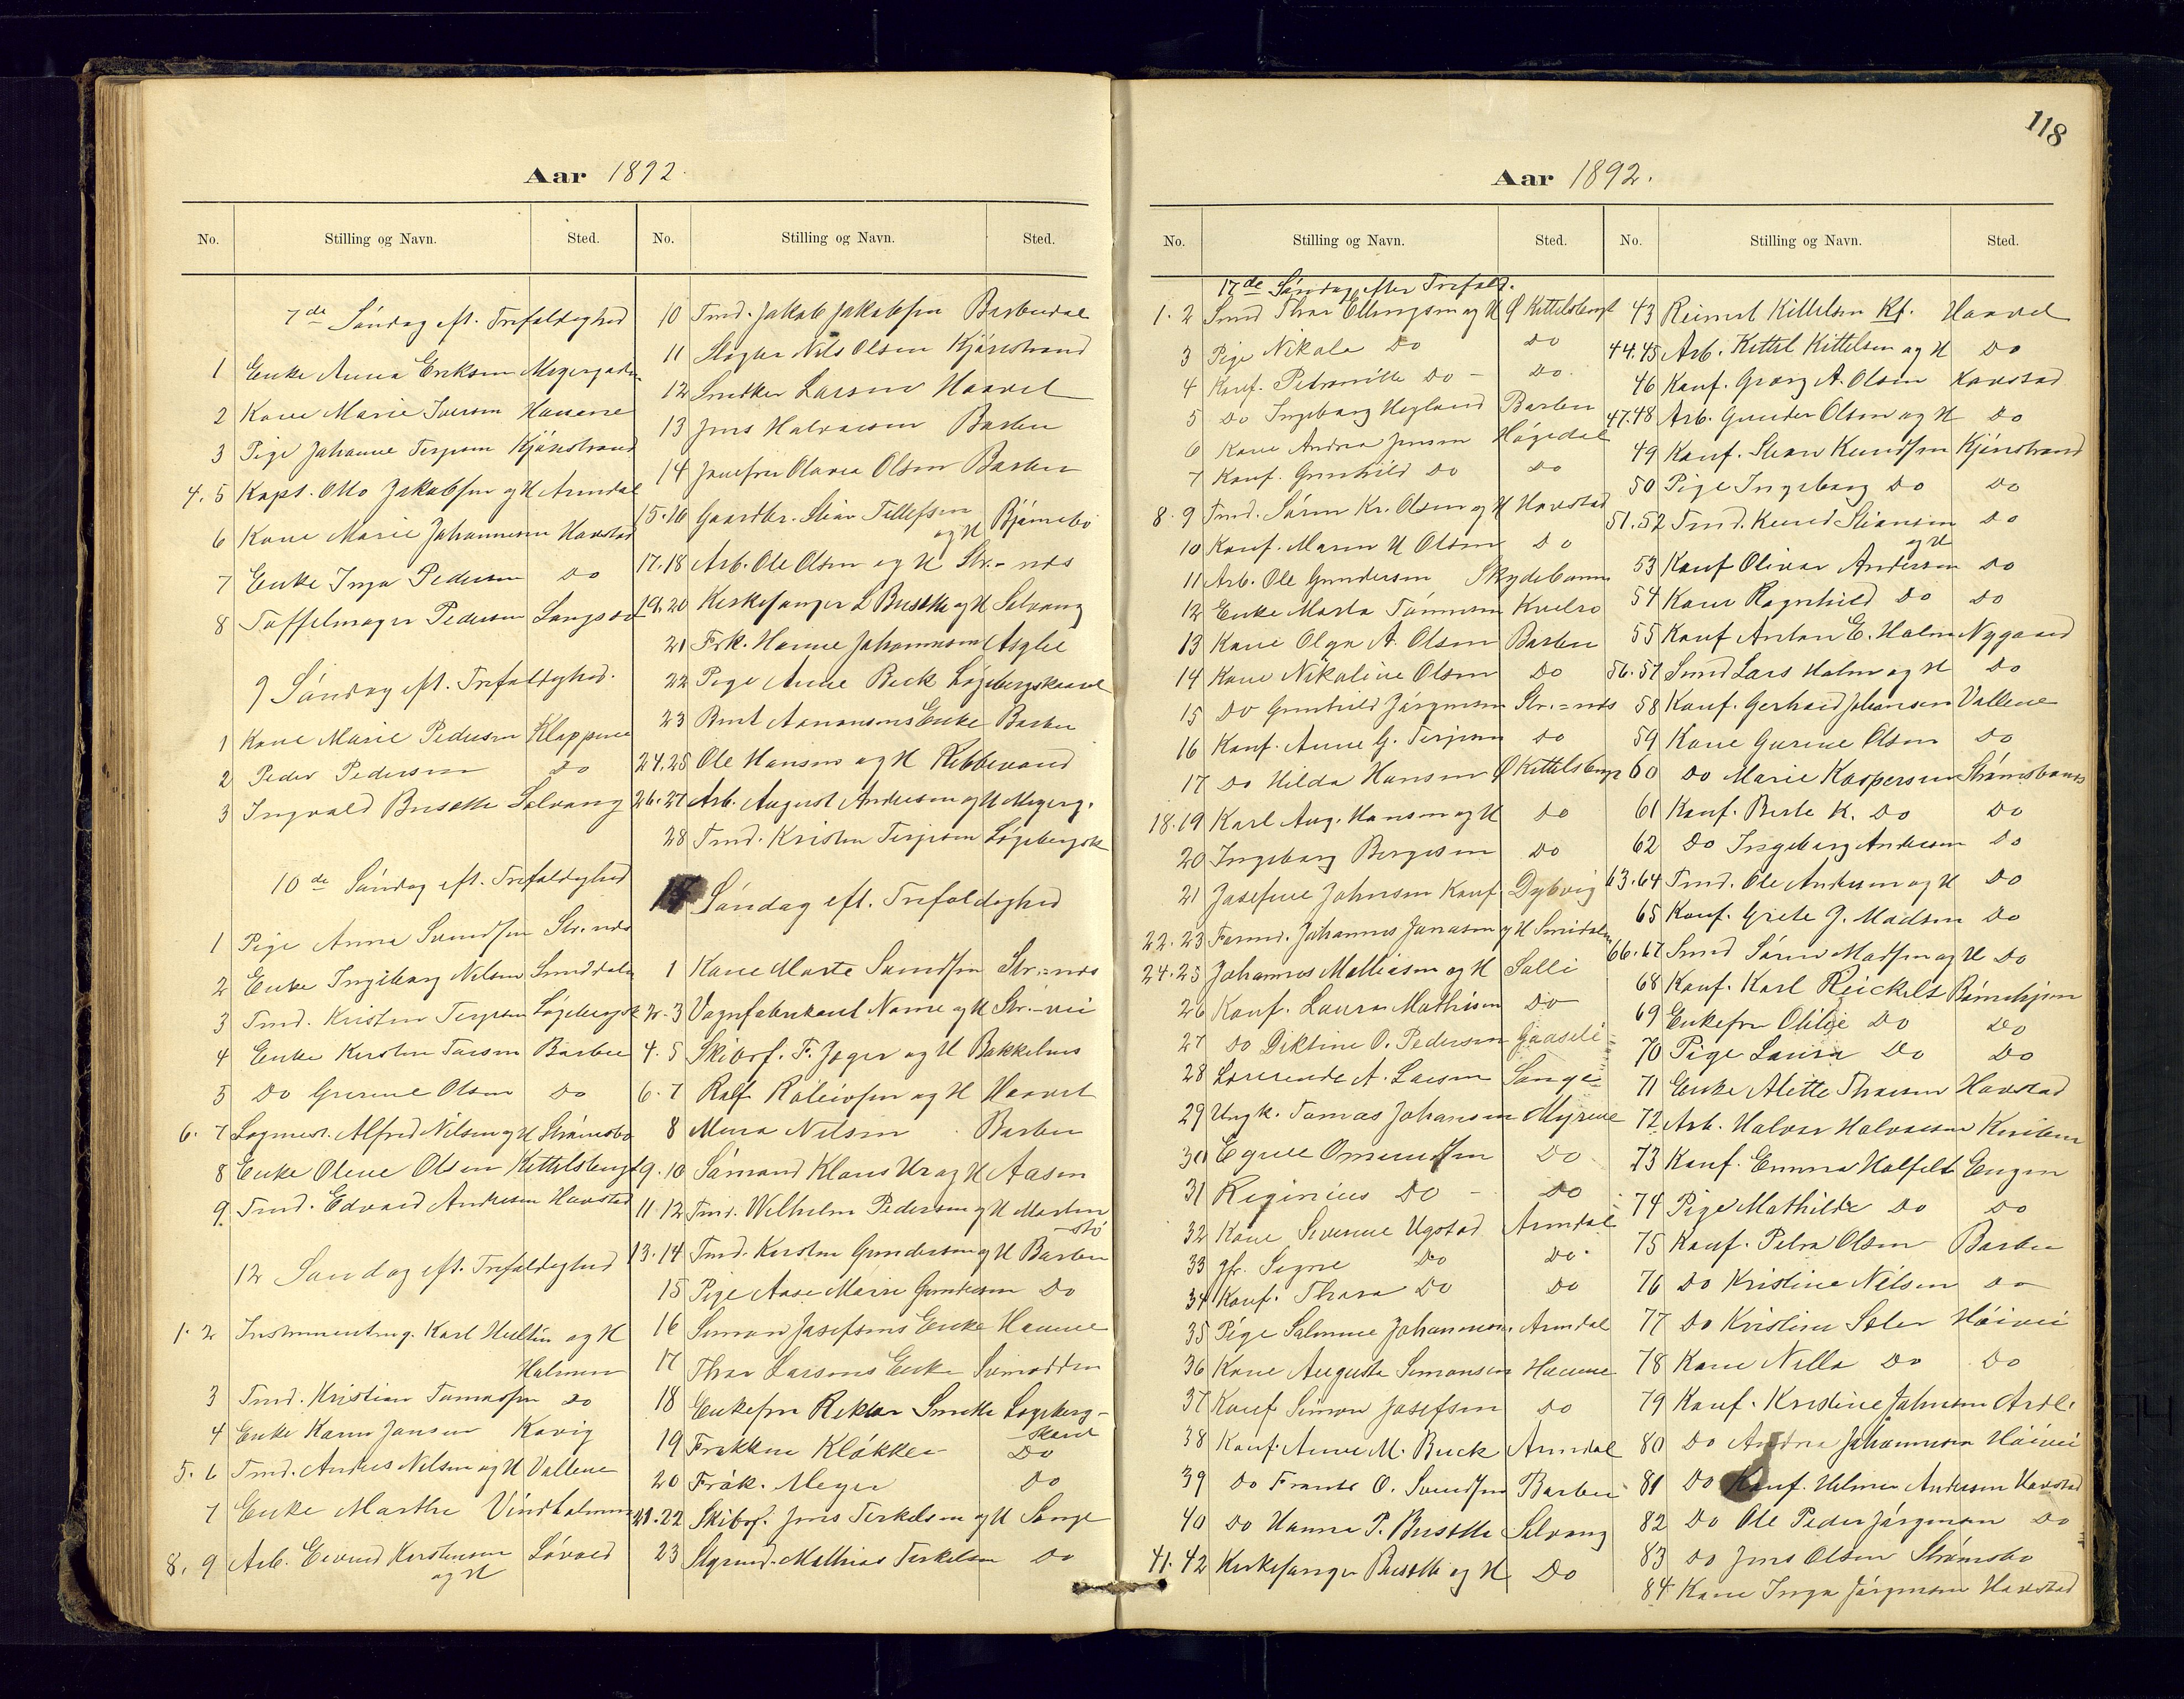 118
Aar 1892.
No. Stilling og Navn. Sted. No. Stilling og Navn. Sted.
7de Søndag eft. Trefoldighed
1 Enke Anna Eriksen
2 Kone Marie Iversen Hauene
3 Pige Johanne Terjesen Kjønstrand
4. 5 Kapt. Otto Jakobsen og H Arendal
6 Kone Marie Johannesen Havstad
7 Enke Inga Pedersen Do
8 Toffelmager Pedersen Langsæ
9 Søndag eft. Trefoldighed.
1 Kone Marie Pedersen Klappene
2 Peder Pedersen Do
3 Ingvald Busette Solvang
10de Søndag eft. Trefoldighed
1 Pige Anna Svendsen Str. nds
2 Enke Ingeborg Nilsen Smeddalen
3 Tmd. Kristen Terjesen Løgebergsk
4 Enke Kirsten Larsen Barbu
5 Do Gurine Olsen Do
6. 7 Logmest. Alfred Nilsen og H Strømsbo
8 Enke Olene Olsen Kittelsbugt
9. Tmd. Edvard Andersen Havstad
12 Søndag eft. Trefoldighed
1. 2 Instrumentmg. Karl Hultin og H
Holmen
3 Tmd. Kristian Tomassen Do
4 Enke Karen Jansen Kavig
5. 6 Tmd. Anders Nilsen og H Vallene
7 Enke Marthe Vindholmen
8. 9 Arb. Eivind Kerstensen Løvold
og H
10 Tmd. Jakob Jakobsen Barbudal
11 Slagter Nils Olsen Kjønstrand
12 Snedker Larsen Haavet
13 Jens Halvorsen Barbu
14 Jomfru Olava Olsen Barbu
15. 16 Gaardbr. Stian Tellefsen Bjønnebo
og H
17. 18 Arb. Ole Olsen og H Str.- nds
19. 20 Kirkesanger L Busette og H Solvang
21 Frk. Hanne Johannesen Asylet
22 Pige Anne Beck Løgebergskaaret
23 Bent Aanonsens Enke Barbu
24. 25 Ole Hansen og H Ribbevand
26. 27 Arb. August Andersen og H
28 Tmd. Kristen Terjesen Løgebergsk
Søndag eft. Trefoldighed
1 Kone Marte Svendsen Str.- nds
2. 3 Vognfabrikant Name og H Str.- vei
4. 5 Skibsf. F. Jæger og H Bakkehus
6. 7 Ralf Røleivsen og H Haavet
8 Mina Nilsen Barbu
9. 10 Sømand Klaus Ur og H Aasen
11. 12 Tmd. Wilhelm Pedersen og H Morten
stø
13. 14 Tmd. Kirsten Gundersen og H Barbu
15 Pige Aase Marie Gundersen Do
16 Simon Josefsens Enke Hauene
17 Thor Larsens Enke Svinodden
18 Enkefru Rektor Smitte Løgeberg-
skaret
19 Frøkken Kløkker Do
20 Frøk. Meyer Do
21. 22 Skibsf. Jens Terkelsen og H Songe
23 Styrmd. Mathias Terkelsen Do
Aar 1892.
No. Stilling og Navn. Sted. No. Stilling og Navn. Sted.
17de Søndag efter Trefold.
1. 2 Smed Thor Ellingsen og H Ø Kittelsbugt
3 Pige Nikola Do Do
4 Konf. Petronille Do - Do.
5 Do Ingeborg Hegland Barbu
6 Kone Andrea Jensen Høgedal
7 Konf. Gunhild Do Do
8. 9 Tmd. Søren Kr. Olsen og H Havstad
10 Konf. Maren H Olsen Do
11 Arb. Ole Gundersen Skydebanen
12 Enke Marta Tønnesen
13 Kone Olga A. Olsen Barbu
14 Kone Nikoline Olsen Do
15 Do Gunhild Jørgensen Str.- nds
16 Konf. Anne G. Terjesen Do
17 Do Hilda Hansen Ø Kittelsbugt
18. 19 Karl Aug. Hansen og H Do
20 Ingeborg Bergesen Do
21 Josefine Johnsen Konf. Dybvig
22. 23 Formd. Johannes Jonassen og H Smidalen
24. 25 Johannes Mathiasen og H Solli
26 Konf. Laura Mathisen Do
27 Do Diktine O. Pedersen Gaaseli
28 Lærerinde A. Larsen Songe
29 Ungk. Tomas Johansen Myrene
30 Eguie Omundsen Do
31 Reginius Do - Do
32 Kone Severine Ugstad Arendal
33 gfr. Signe Do Do
34 Konf. Thora Do Do
35 Pige Salmine Johannesen, Arendal
36 Kone Augusta Simonsen Hauene
37 Konf Simon Josefsen Do
38 Konf. Anne M. Buck Arendal
39 Do Frants O. Svendsen Barbu
40 Do Hanna P. Busette Solvang
41. 42 Kirkesanger Busette og H Do
43 Reinert Kittelsen Kf. Haavet
44. 45 Arb. Kittel Kittelsen og H Do
46 Konf. Georg A. Olsen Havstad
47. 48 Arb. Gunder Olsen og H Do
49 Konf. Stian Knudsen Kjønstrand
50 Pige Ingeborg Do Do
51. 52 Tmd. Knud Stiansen Do
og H
53 Konf Olivar Andersen Do
54 Kone Ragnhild Do Do
55 Konf Anton E. Holm Nygaard
56. 57 Smed Lars Holm og H Do
58 Konf. Gerhard Johansen Vallene
59 Kone Gurine Olsen Do
60 Do Marie Kaspersen Strømsbunes
61 Konf. Berte K. Do Do
62 Do Ingeborg Andersen Do
63. 64 Tmd. Ole Andersen og H Do
65 Konf. Grete G. Madsen Do
66. 67 Smed Søren Madsen og H Do
68 Konf. Karl Reickelt Børnehjem
69 Enkefru Otilie Do Do
70 Pige Laura Do Do
71 Enke Alette Thorsen Havstad
72 Arb. Halvor Halvorsen
73 Konf. Emma Halfelt Engen
74 Pige Mathilde Do Do
75 Konf. Petra Olsen Barbu
76 Do Kristine Nilsen Do
77 Do Kristine Seler Høivei
78 Kone Nilla Do Do
79 Konf. Kristine Johnsen Ardl.
80 Do Andrea Johannesen Høivei
81 Do Konf. Hilmer Andersen Havstad
82 Do Ole Peder Jørgensen Do
83 Do Jens Olsen Strømsbo
84 Kone Inga Jørgensen Havstad